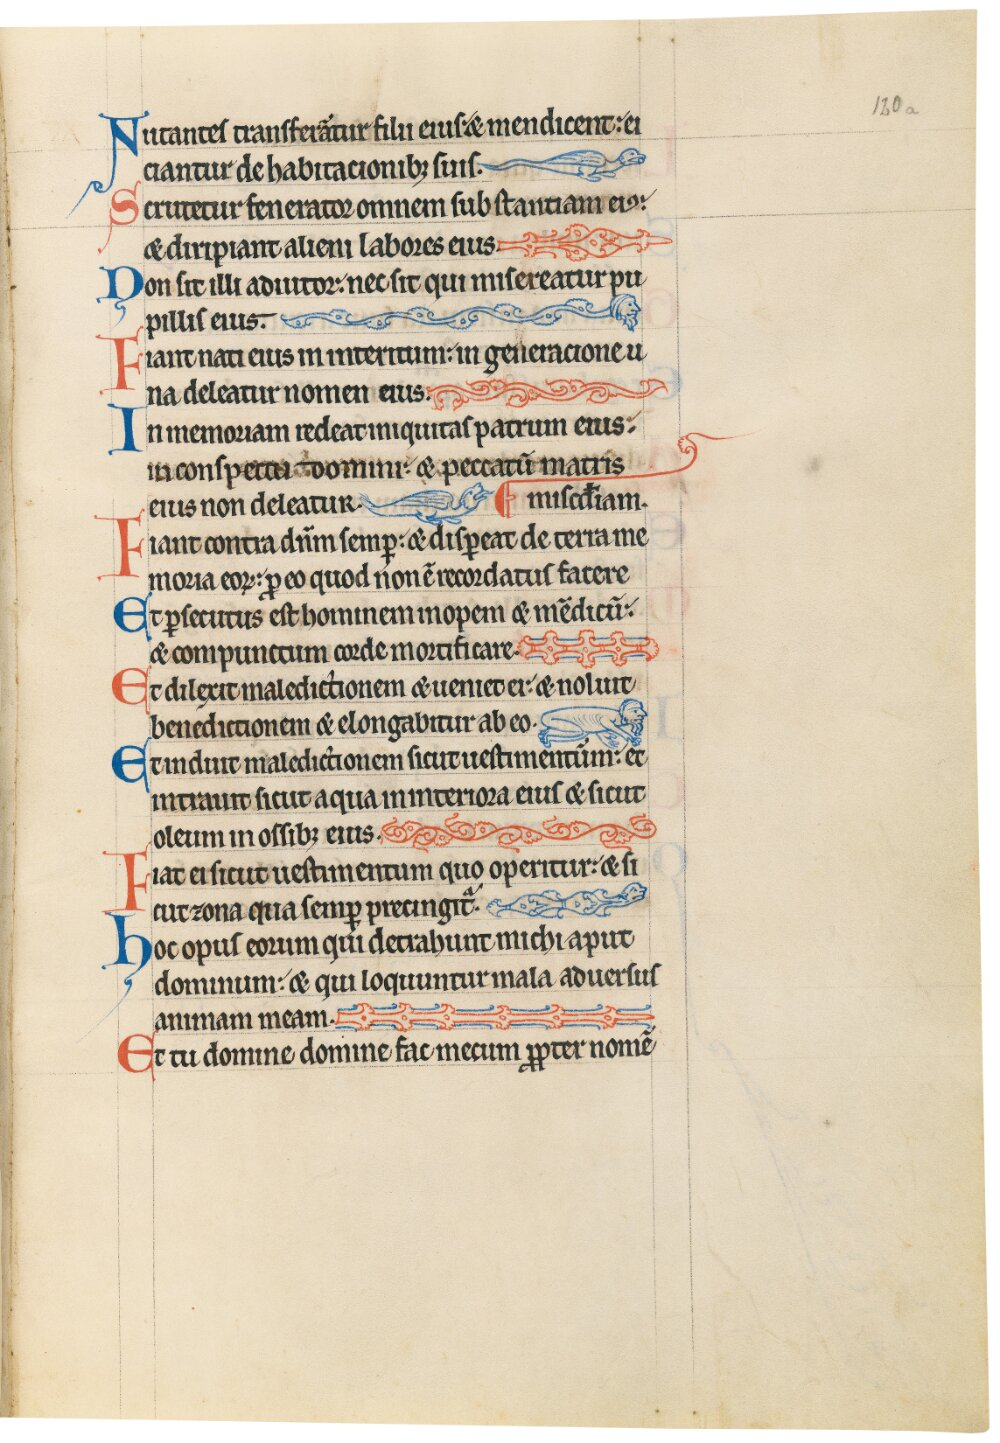 130a
Nutantes transferãtur filii eius: & mendicent: ei
ciantur de habitacionibꝫ suis.
Scrutetur fenerator omnem substantiam eiꝰ:
& diripiant alieni labores eius.
Non sit illi adiutor: nec sit qui misereatur pu
pillis eius.
Fiant nati eius in interitum: in generacione u
na deleatur nomen eius.
In memoriam redeat iniquitas patrum eius:
in conspectu domini: & peccatũ matris
eius non deleatur.
Fiant contra dñm semꝑ: & disꝑeat de terra me
moria eoꝝ: ꝓ eo quod non ẽ recordatus facere
misc̃diam.
Et ꝑsecutus est hominem inopem & mẽdicũ:
& compunctum corde mortificare.
Et dilexit maledictionem & ueniet ei: & noluit
benedictionem & elongabitur ab eo.
Et induit maledictionem sicut uestimentũm: et
intrauit sicut aqua in interiora eius & sicut
oleum in ossibꝫ eius.
Fiat ei sicut uestimentum quo operitur: & si
cut zona qua semꝑ precingit᷑.
Hoc opus eorum qui detrahunt michi aput
dominum: & qui loquuntur mala aduersus
animam meam.
Et tu domine domine fac mecum ꝓpter nomẽ